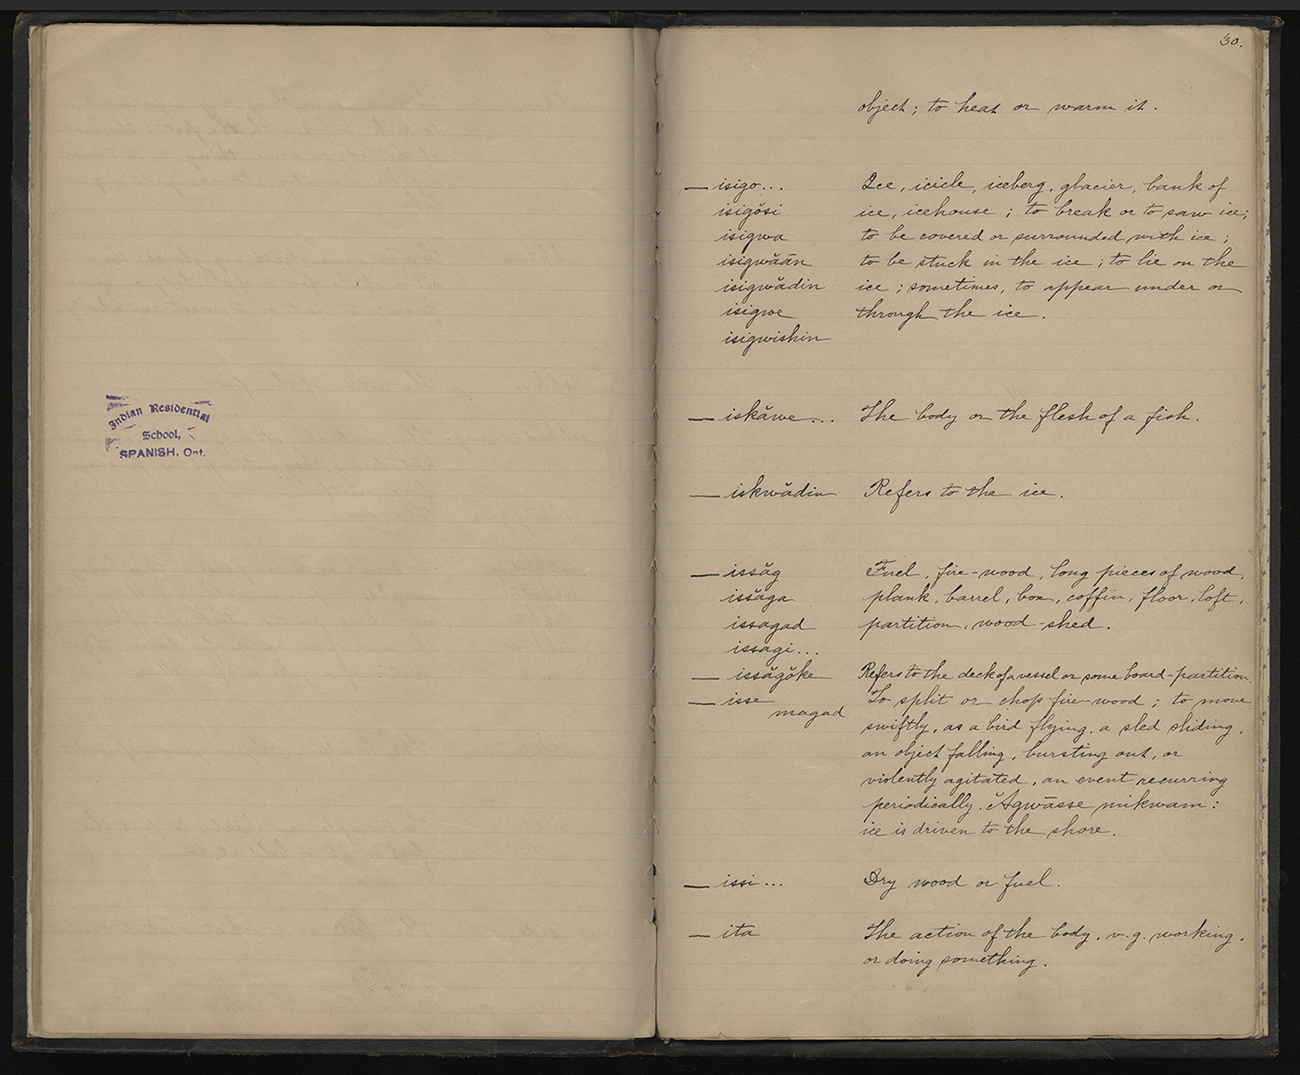 Indian Residential
School,
SPANISH, Ont.
30.
object; to heat or warm it.
— isigo... Ice, icicle, iceberg, glacier, bank of
isigŏsi ice, icehouse; to break or to saw ice;
isigwa to be covered or surrounded with ice;
isigwăān to be stuck in the ice; to lie on the
isigwădin ice; sometimes, to appear under or
isigwe through the ice.
isigwishin
— iskăwe... The body or the flesh of a fish.
— iskwădin Refers to the ice.
— issăg Fuel, fire-wood, long pieces of wood,
issăga plank, barrel, box, coffin, floor, loft,
issagad partition, wood-shed.
issagi...
— issăgŏke Refers to the deck of a vessel or some board-partition.
— isse To split or chop fire-wood; to move
magad swiftly, as a bird flying, a sled sliding,
an object falling, bursting out, or
violently agitated, an event recurring
periodically. Ăgwāsse mikwam:
ice is driven to the shore.
— issi... Dry wood or fuel.
— ita The action of the body, v.g. working,
or doing something.